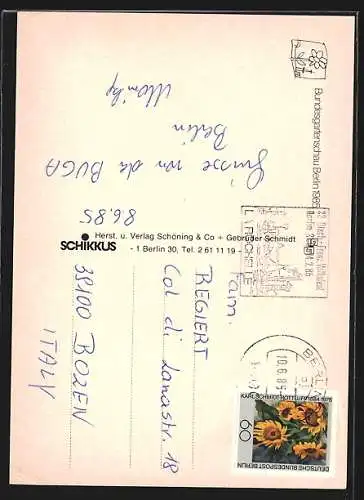 Bundesgartenschau Berlin 1985
8.6.85
Grüsse von der BUGA
Berlin
SCHIKKUS
Herst. u. Verlag Schöning & Co + Gebrüder Schmidt
- 1 Berlin 30, Tel. 2 61 11 19 -
Fam.
REGIERT
Col di Lanastr. 18
39100 BOZEN
ITALY
BERLIN
10.6.85
60
DEUTSCHE BUNDESPOST BERLIN